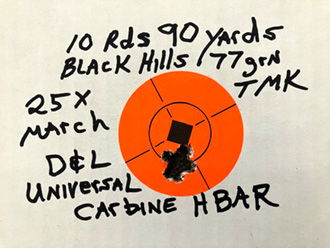 10 Rds 90 yards
BLACK Hills 77grn
TMK
25X
MARCH
D&L
UNIVERSAL
CARBINE HBAR